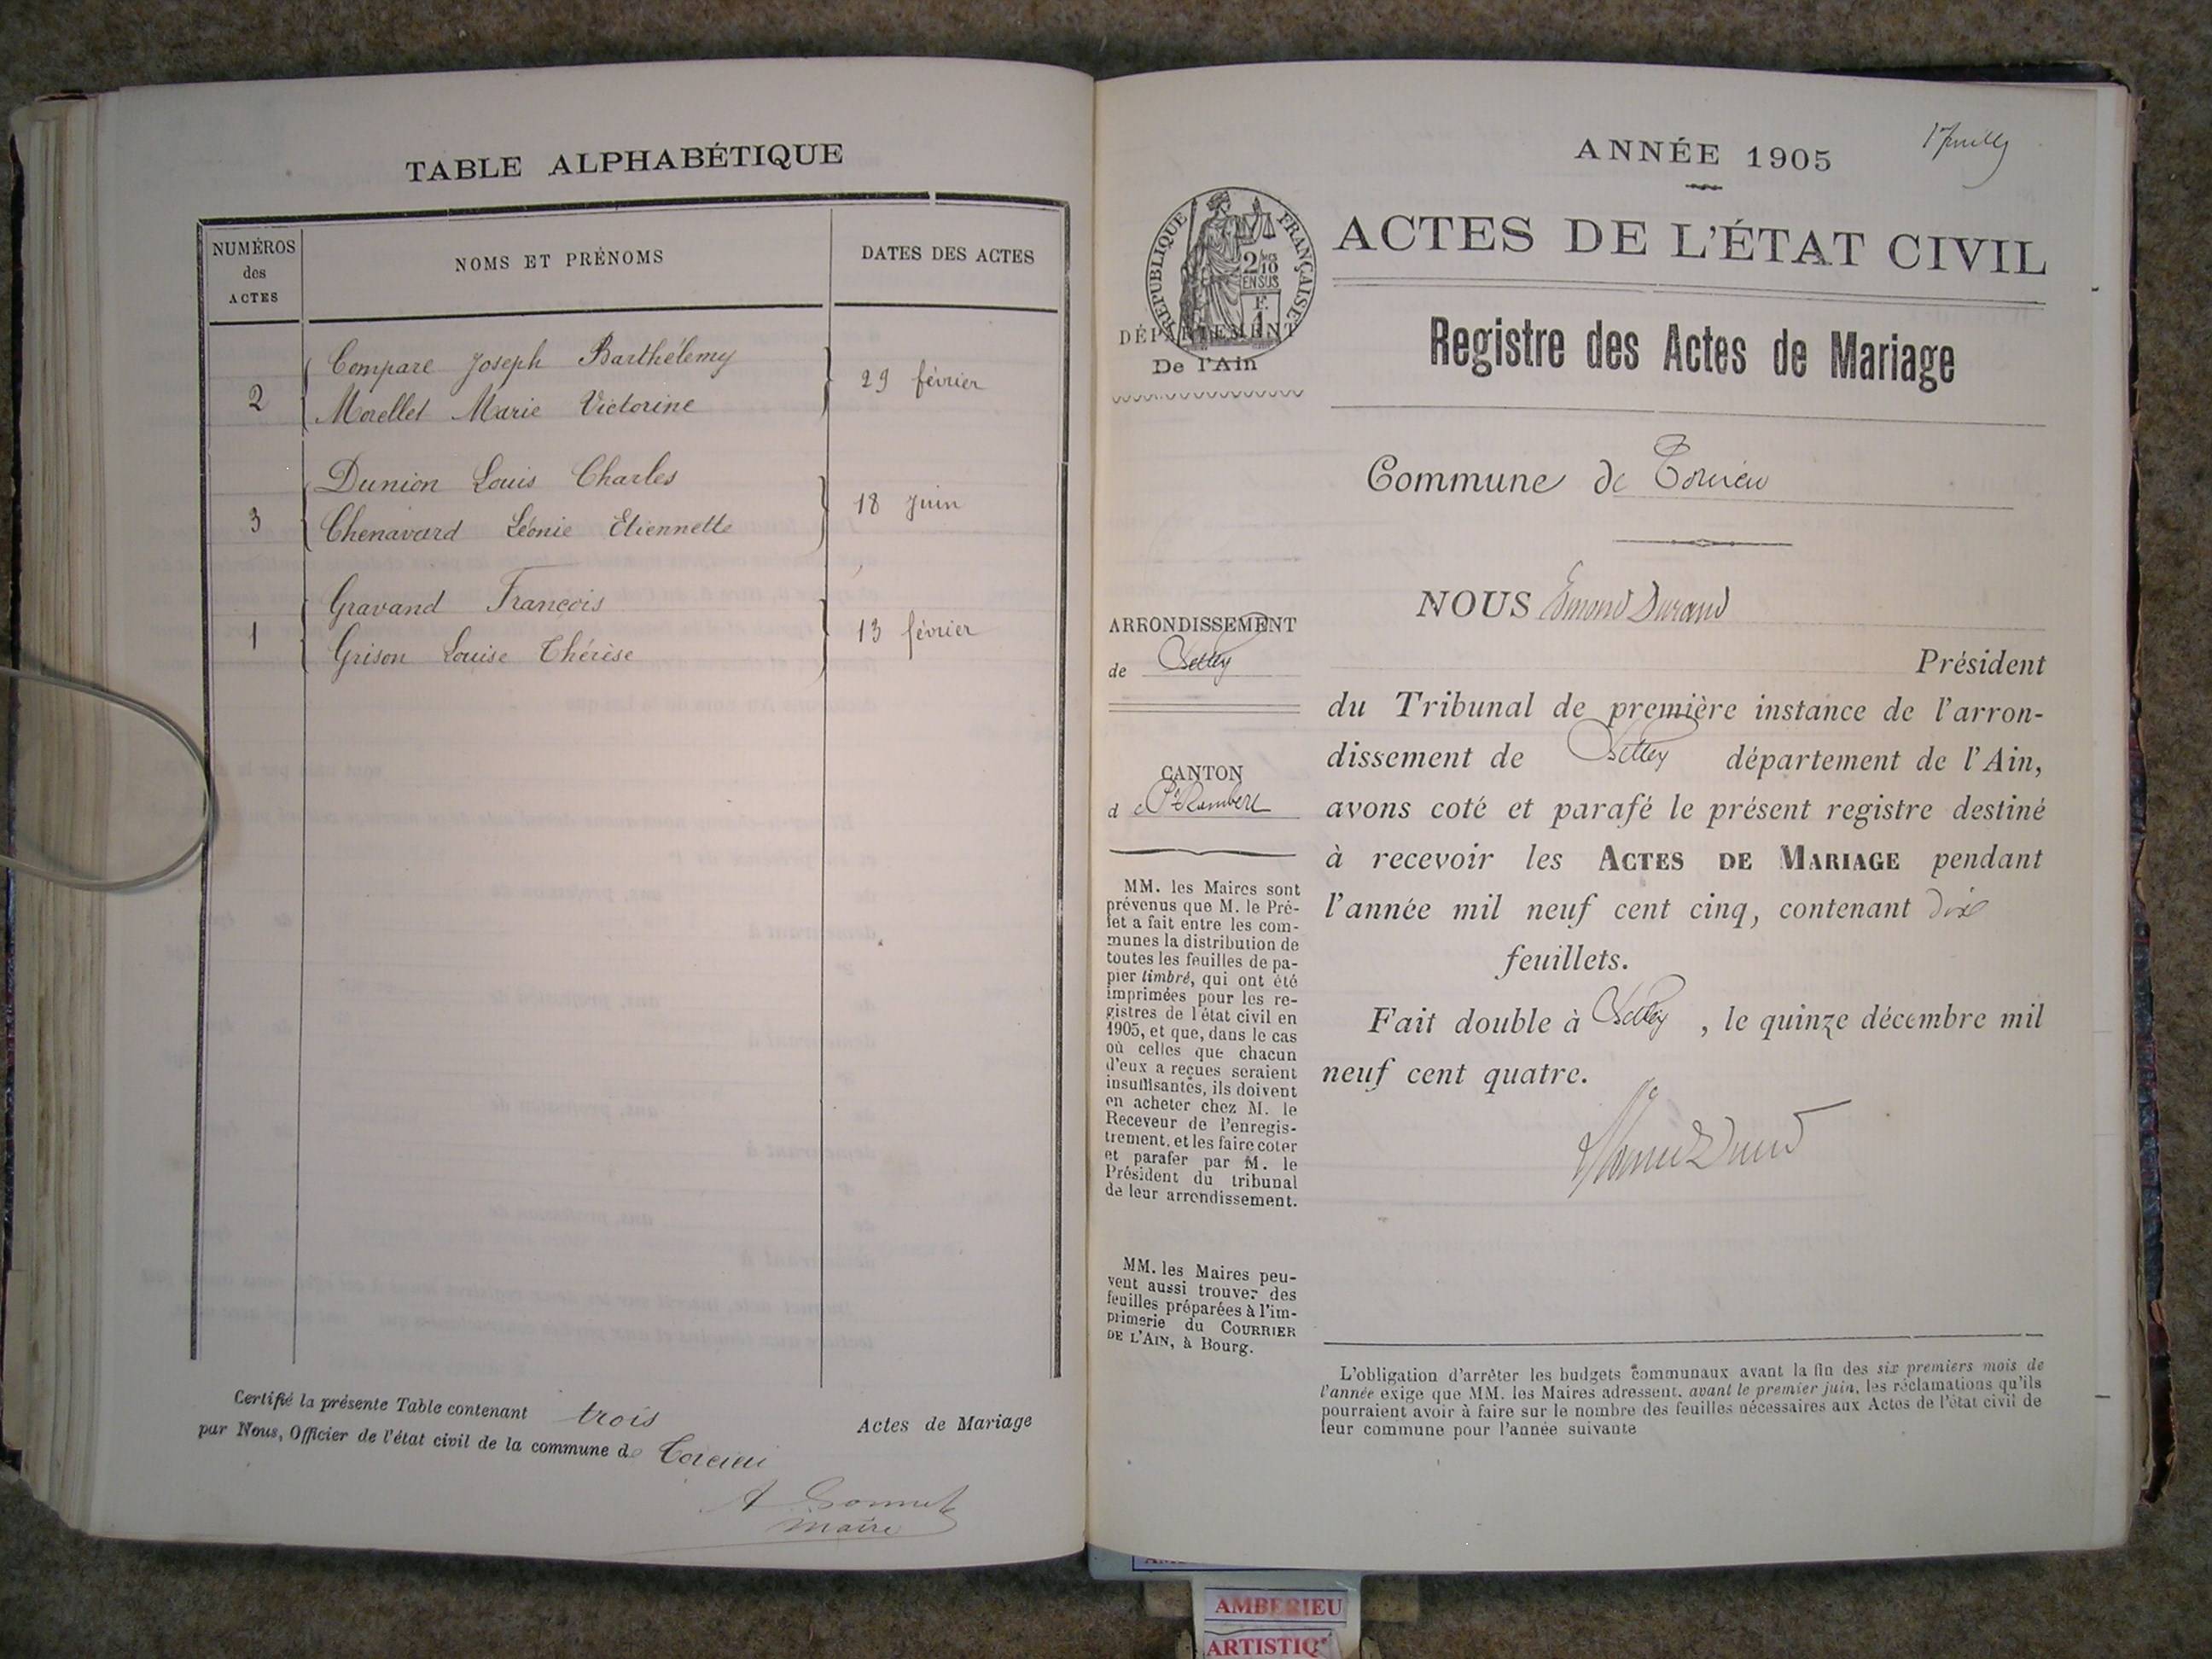 TABLE ALPHABÉTIQUE
NUMÉROS
des
ACTES
NOMS ET PRÉNOMS
DATES DES ACTES
2
Compare Joseph Barthélemy
Morellet Marie Victorine
29 février
3
Dunion Louis Charles
Chenavard Léonie Etiennette
18 juin
1
Gravand François
Grison Louise Thérèse
13 février
Certifié la présente Table contenant trois Actes de Mariage
par Nous, Officier de l'état civil de la commune de Torcieu
A Bonnet
maire
ANNÉE 1905
ACTES DE L'ÉTAT CIVIL
RÉPUBLIQUE FRANÇAISE
2/10
EN SUS
F.
1
DÉPARTEMENT
De l'Ain
Registre des Actes de Mariage
Commune de Torcieu
ARRONDISSEMENT
de Belley
CANTON
de St Rambert
MM. les Maires sont
prévenus que M. le Pré-
fet a fait entre les com-
munes la distribution de
toutes les feuilles de pa-
pier timbré, qui ont été
imprimées pour les re-
gistres de l'état civil en
1905, et que, dans le cas
où celles que chacun
d'eux a reçues seraient
insuffisantes, ils doivent
en acheter chez M. le
Receveur de l'enregis-
trement, et les faire coter
et parafer par M. le
Président du tribunal
de leur arrondissement.
MM. les Maires peu-
vent aussi trouver des
feuilles préparées à l'im-
primerie du COURRIER
DE L'AIN, à Bourg.
NOUS Edmond Durand
Président
du Tribunal de première instance de l'arron-
dissement de Belley département de l'Ain,
avons coté et parafé le présent registre destiné
à recevoir les ACTES DE MARIAGE pendant
l'année mil neuf cent cinq, contenant dix
feuillets.
Fait double à Belley, le quinze décembre mil
neuf cent quatre.
L'obligation d'arrêter les budgets communaux avant la fin des six premiers mois de
l'année exige que MM. les Maires adressent, avant le premier juin, les réclamations qu'ils
pourraient avoir à faire sur le nombre des feuilles nécessaires aux Actes de l'état civil de
leur commune pour l'année suivante
AMBERIEU
ARTISTIQ